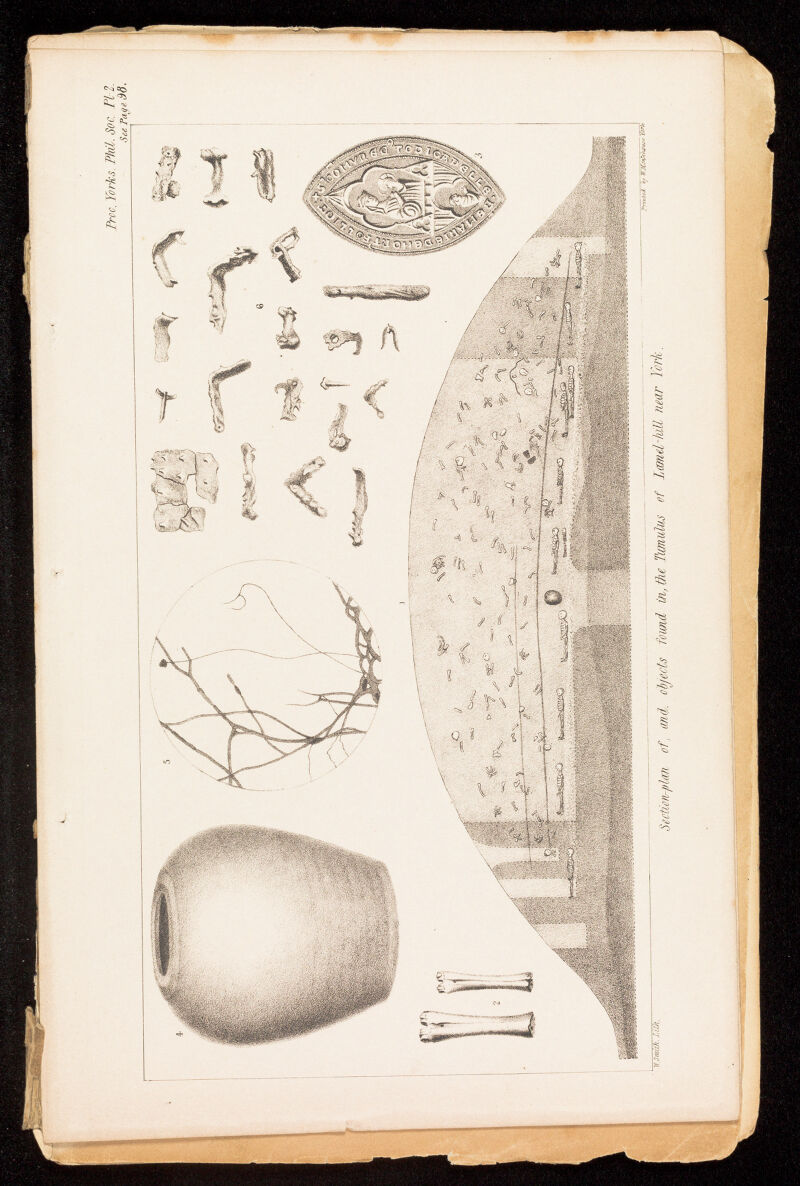 Proc. Yorks. Phil. Soc. Pl. 2.
See Page 98.
3
6
1
5
4
2
W. Smith. Lith.
Section-plan of, and objects found in, the Tumulus of Lamel-hill near York.